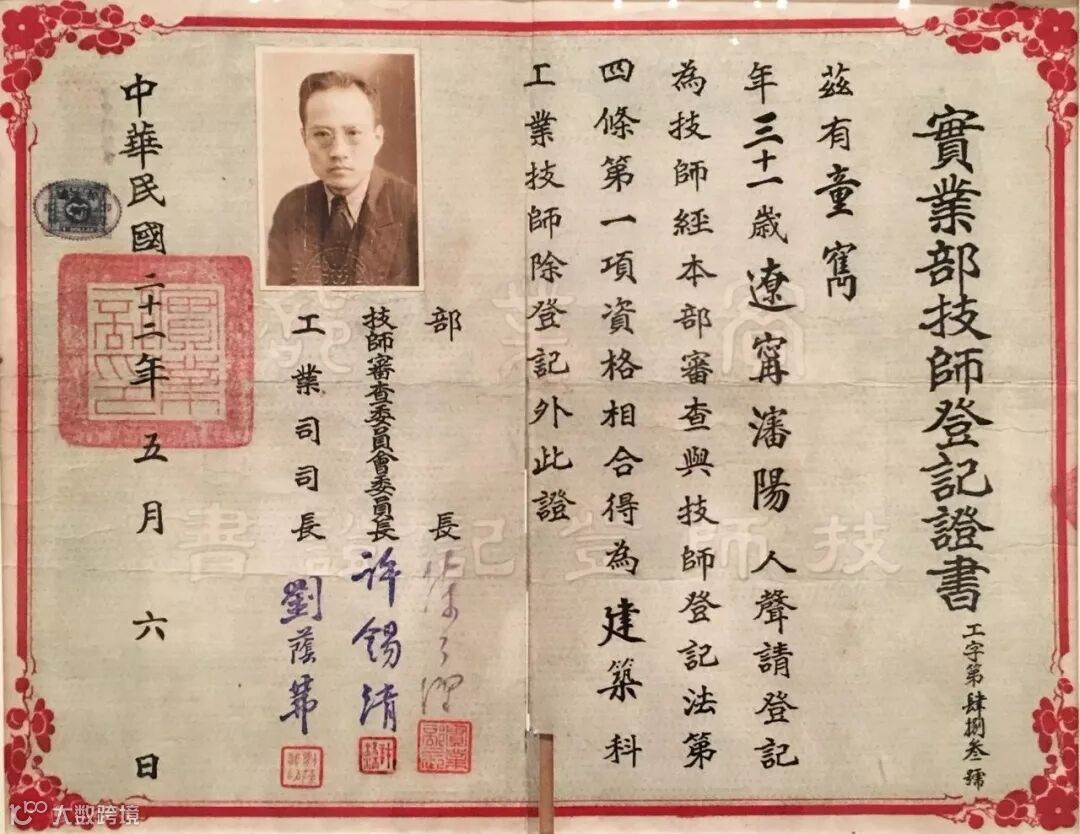 實業部技師登記證書
工字第肆捌叁號
茲有童寯
年三十一歲遼甯瀋陽人聲請登記
為技師經本部審查與技師登記法第
四條第一項資格相合得為建築科
工業技師除登記外此證
部長
技師審查委員會委員長許錫清
工業司司長劉蔭茀
中華民國二十二年五月六日
實業部印
技師登記證書
大数跨境